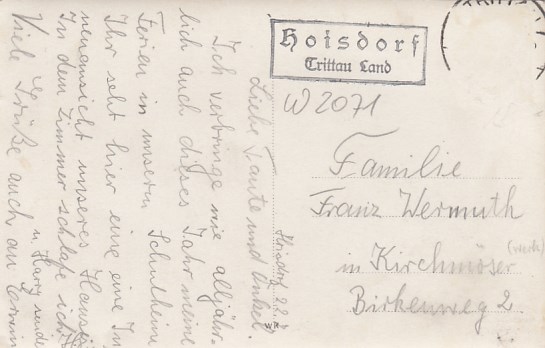 Hoisdorf
Trittau Land
W 2071
Familie
Franz Wermuth
in Kirchmöser
Birkenweg 2
WR
Hoisdorf, 2.8.
Liebe Tante und Onkel.
Ich verbringe wie alljähr-
lich auch dieses Jahr meine
Ferien in unserm Schulheim
Ihr seht hier eine eine In-
nenansicht unseres Hauses
In dem Zimmer schlafe ich
Viele Grüße auch an Erwin
u. Harry sendet